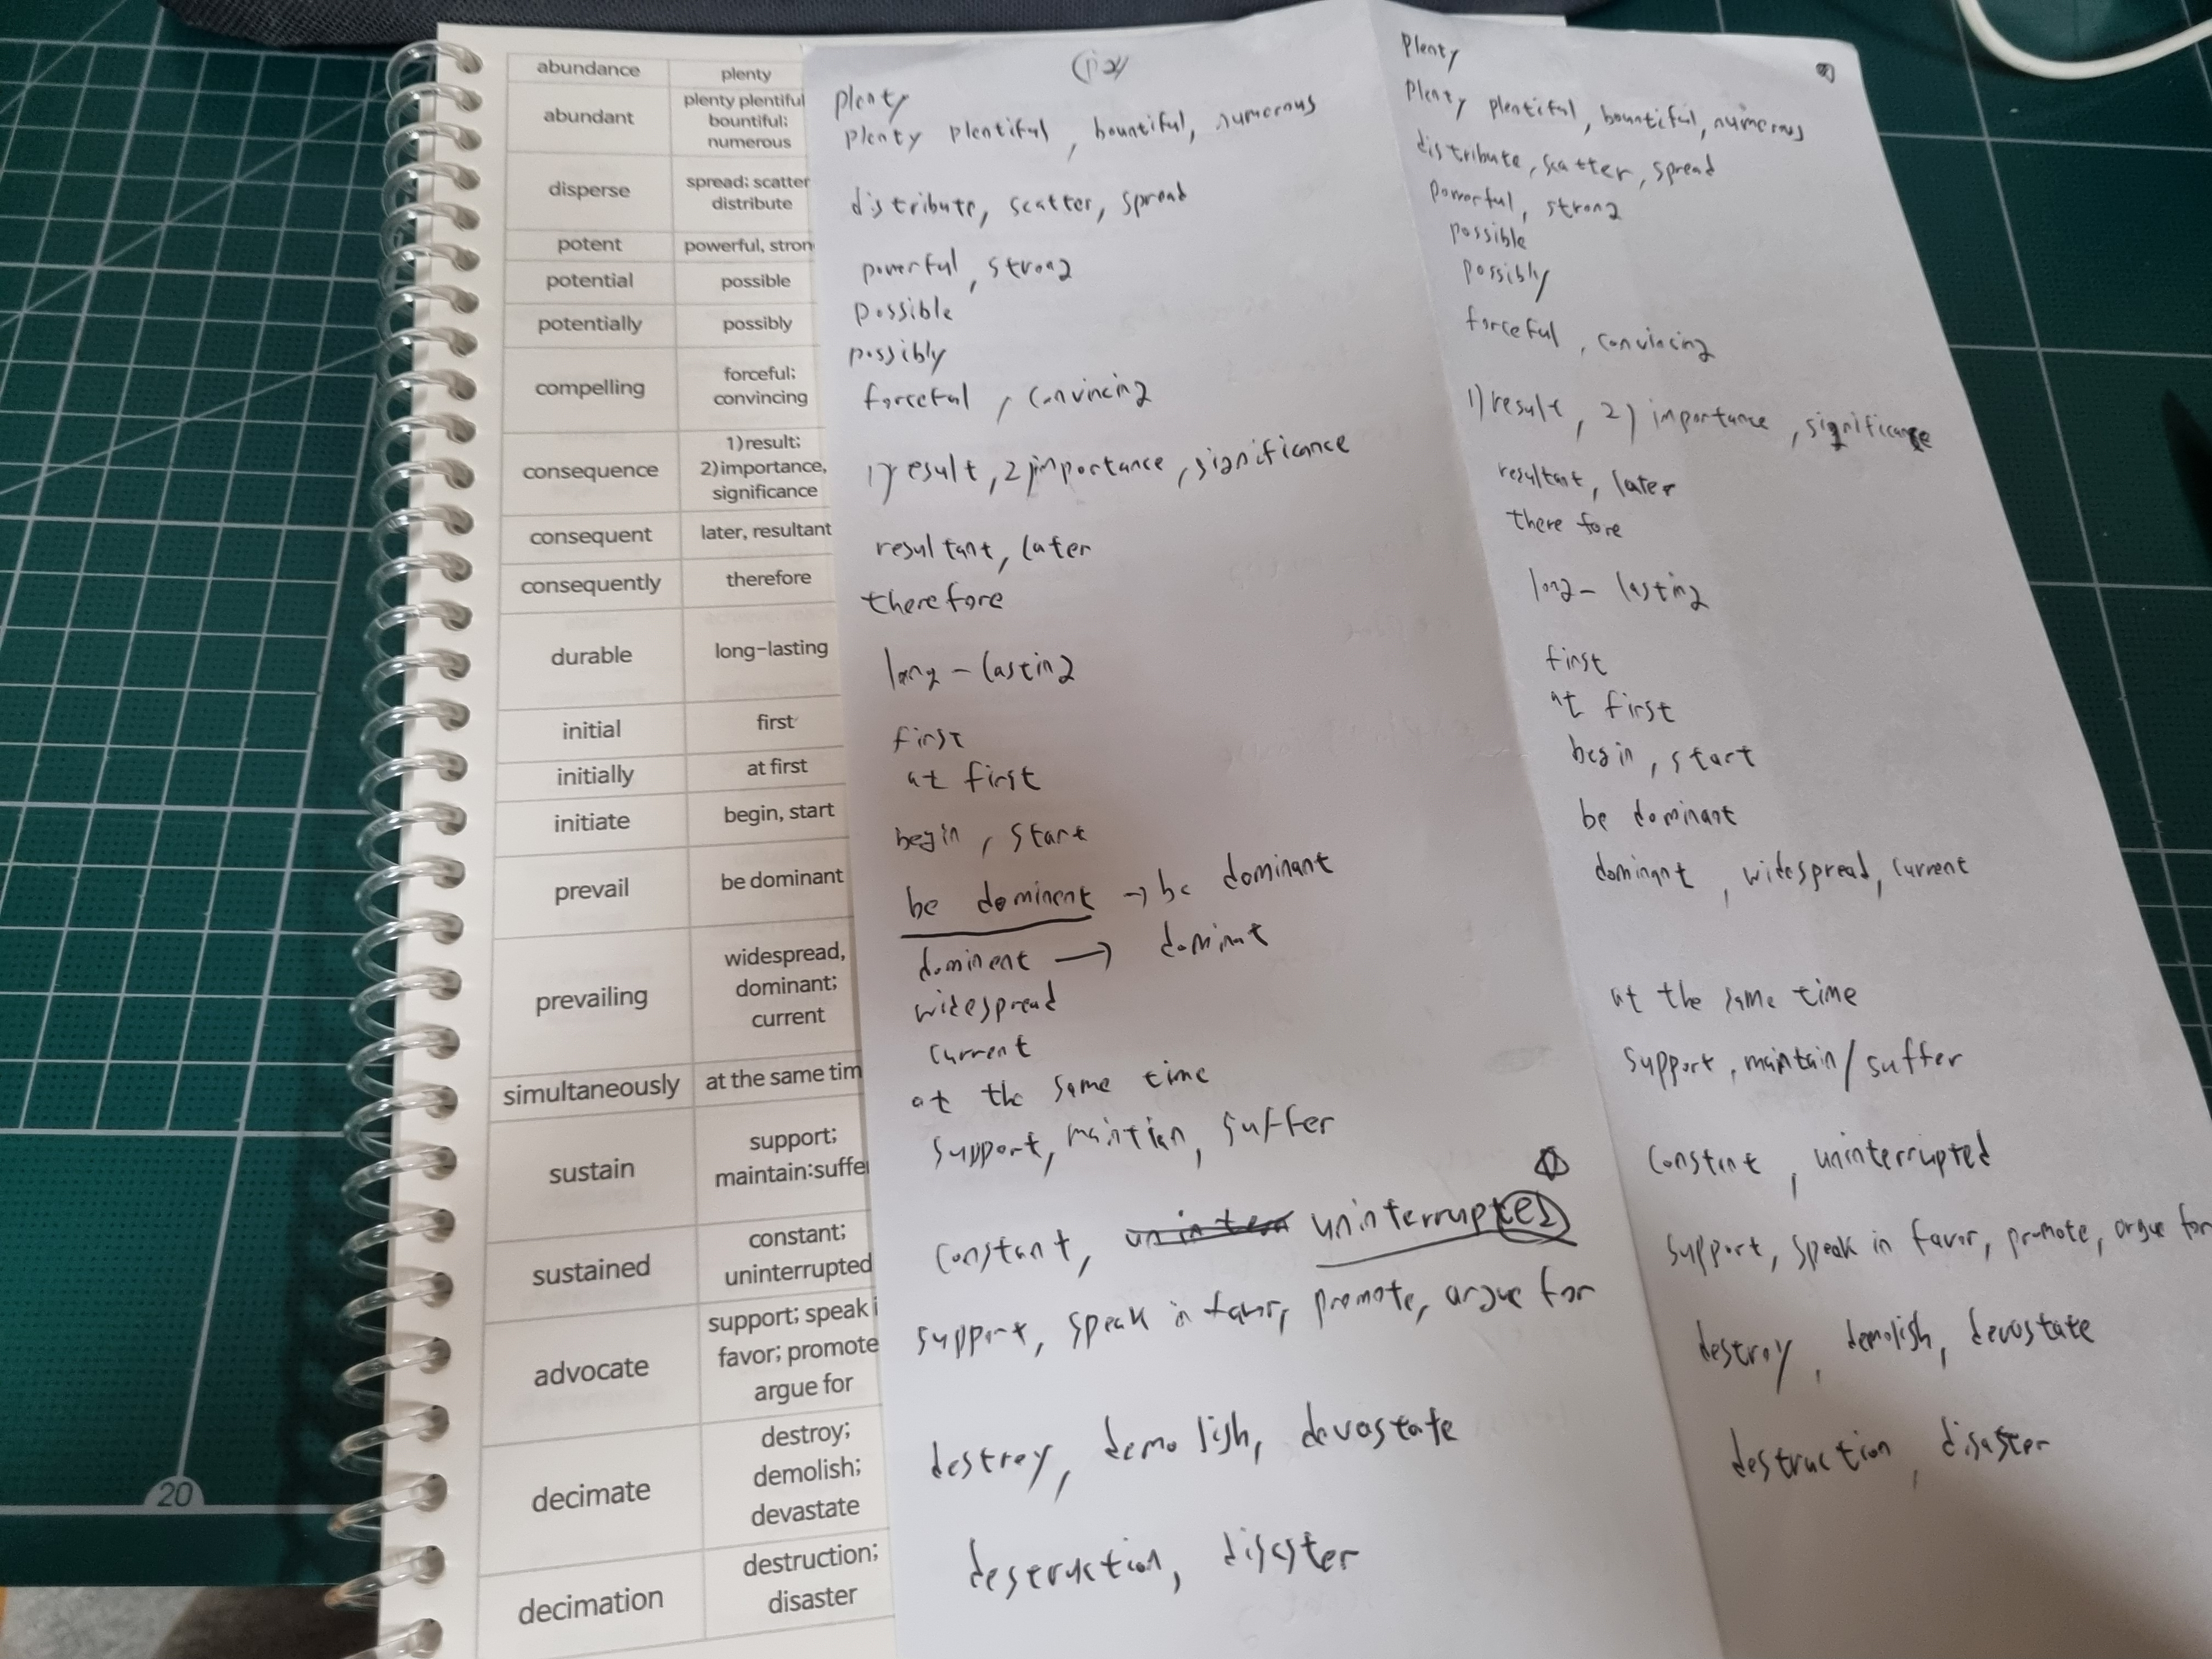 abundance
plenty
abundant
plenty plentiful
bountiful;
numerous
disperse
spread; scatter
distribute
potent
powerful, stron
potential
possible
potentially
possibly
compelling
forceful;
convincing
consequence
1)result;
2)importance,
significance
consequent
later, resultant
consequently
therefore
durable
long-lasting
initial
first
initially
at first
initiate
begin, start
prevail
be dominant
prevailing
widespread,
dominant;
current
simultaneously
at the same tim
sustain
support;
maintain:suffe
sustained
constant;
uninterrupted
advocate
support; speak i
favor; promote
argue for
decimate
destroy;
demolish;
devastate
decimation
destruction;
disaster
plenty
plenty plentiful, bountiful, numerous
distribute, scatter, spread
powerful, strong
possible
possibly
forceful, convincing
1) result, 2) importance, significance
resultant, later
therefore
long-lasting
first
at first
begin, start
be dominent → be dominant
dominent → dominat
widespread
current
at the same time
support, maintian, suffer
constant, uninterrupted
support, speak in favor, promote, argue for
destroy, demolish, devastate
destruction, disaster
Plenty
Plenty plentiful, bountiful, numerous
distribute, scatter, spread
powerful, strong
possible
possibly
forceful, convincing
1) result, 2) importance, significance
resultant, later
therefore
long-lasting
first
at first
begin, start
be dominant
dominant, widespread, current
at the same time
support, maintain/suffer
constant, uninterrupted
support, speak in favor, promote, argue for
destroy, demolish, devastate
destruction, disaster
20